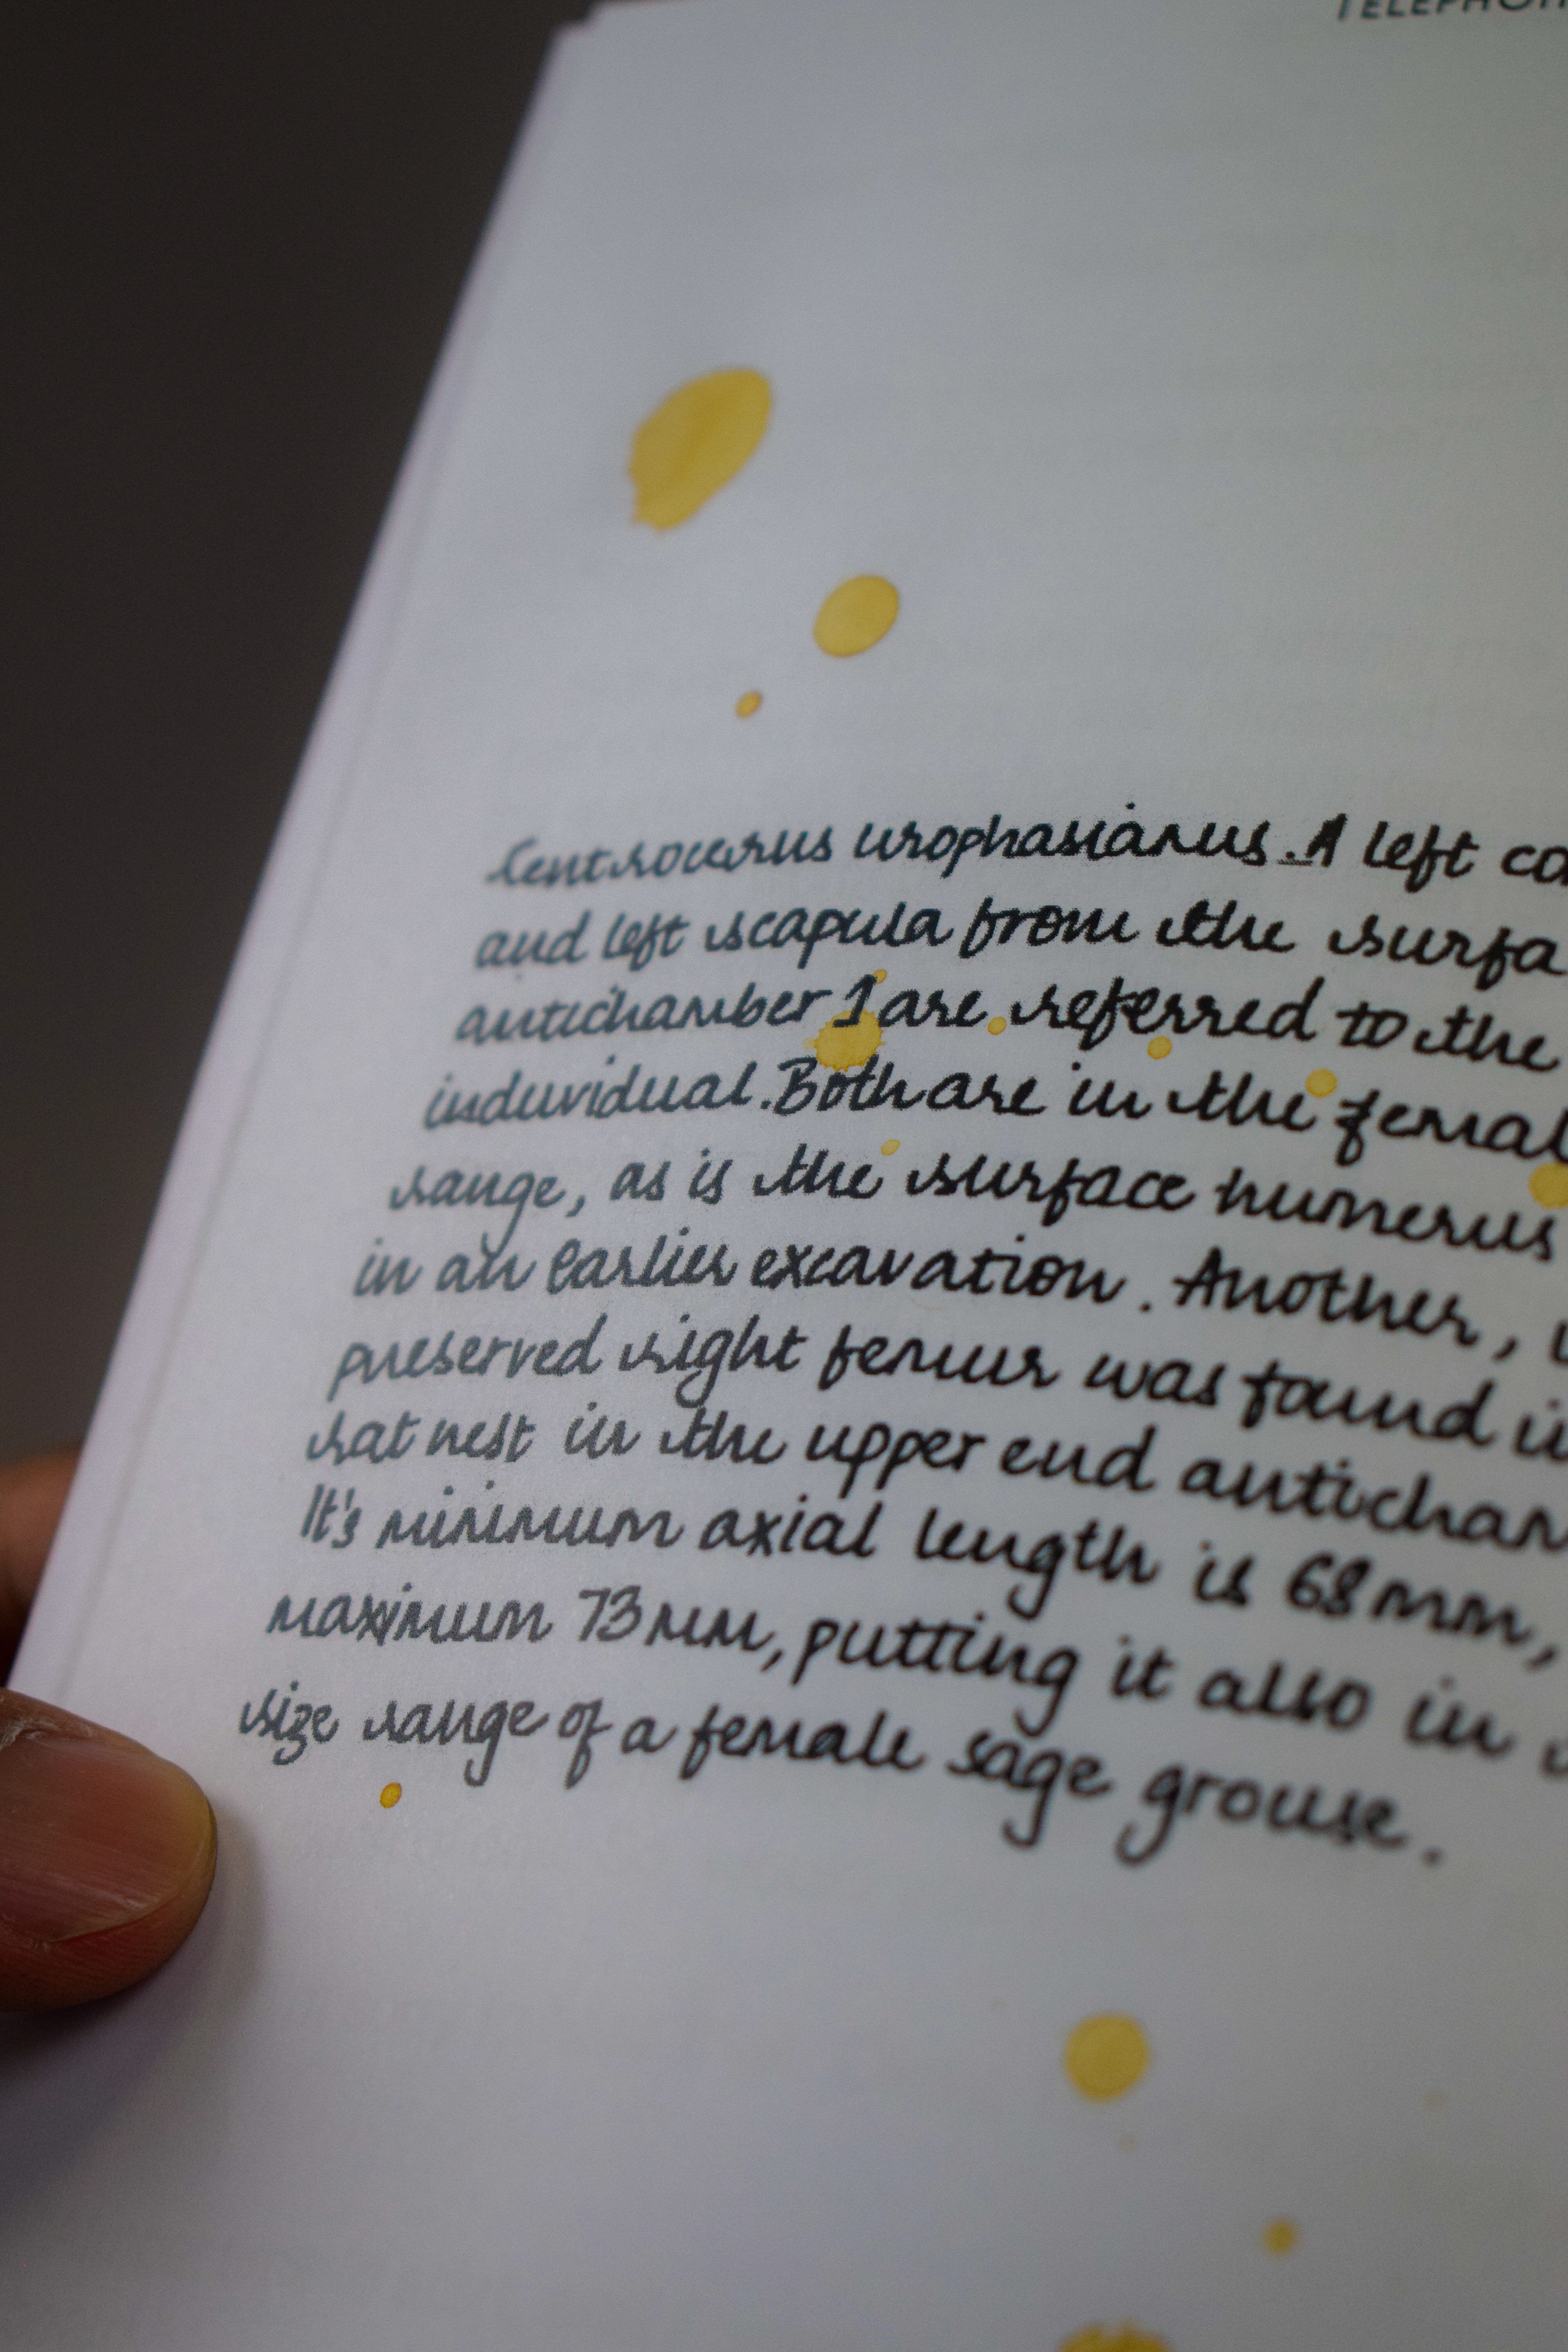 TELEPHON
Centrocercus urophasianus. A left co
and left scapula from the surfa
antichamber 1 are referred to the
individual. Both are in the femal
range, as is the surface humerus
in an earlier excavation. Another,
preserved right femur was found in
rat nest in the upper end anticham
It's minimum axial length is 68mm,
maximum 73mm, putting it also in
size range of a female sage grouse.